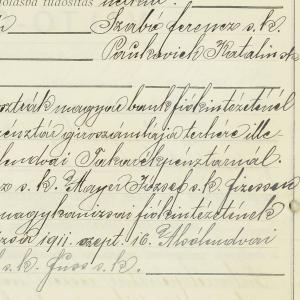 dolásba tudósítás nélkül.
Szabó ferencz s. k.
Paukovich Katalin s. k.
osztrák magyar bank fiókintézeténél
pénztár giroszámlája terhére ille
lendvai Takarékpénztárnál.
s. k. Mayer József s. k. fizessen
nagykanizsai fiókintézetének
1911. szept. 16. Alsólendvai
s. k. Fuss s. k.